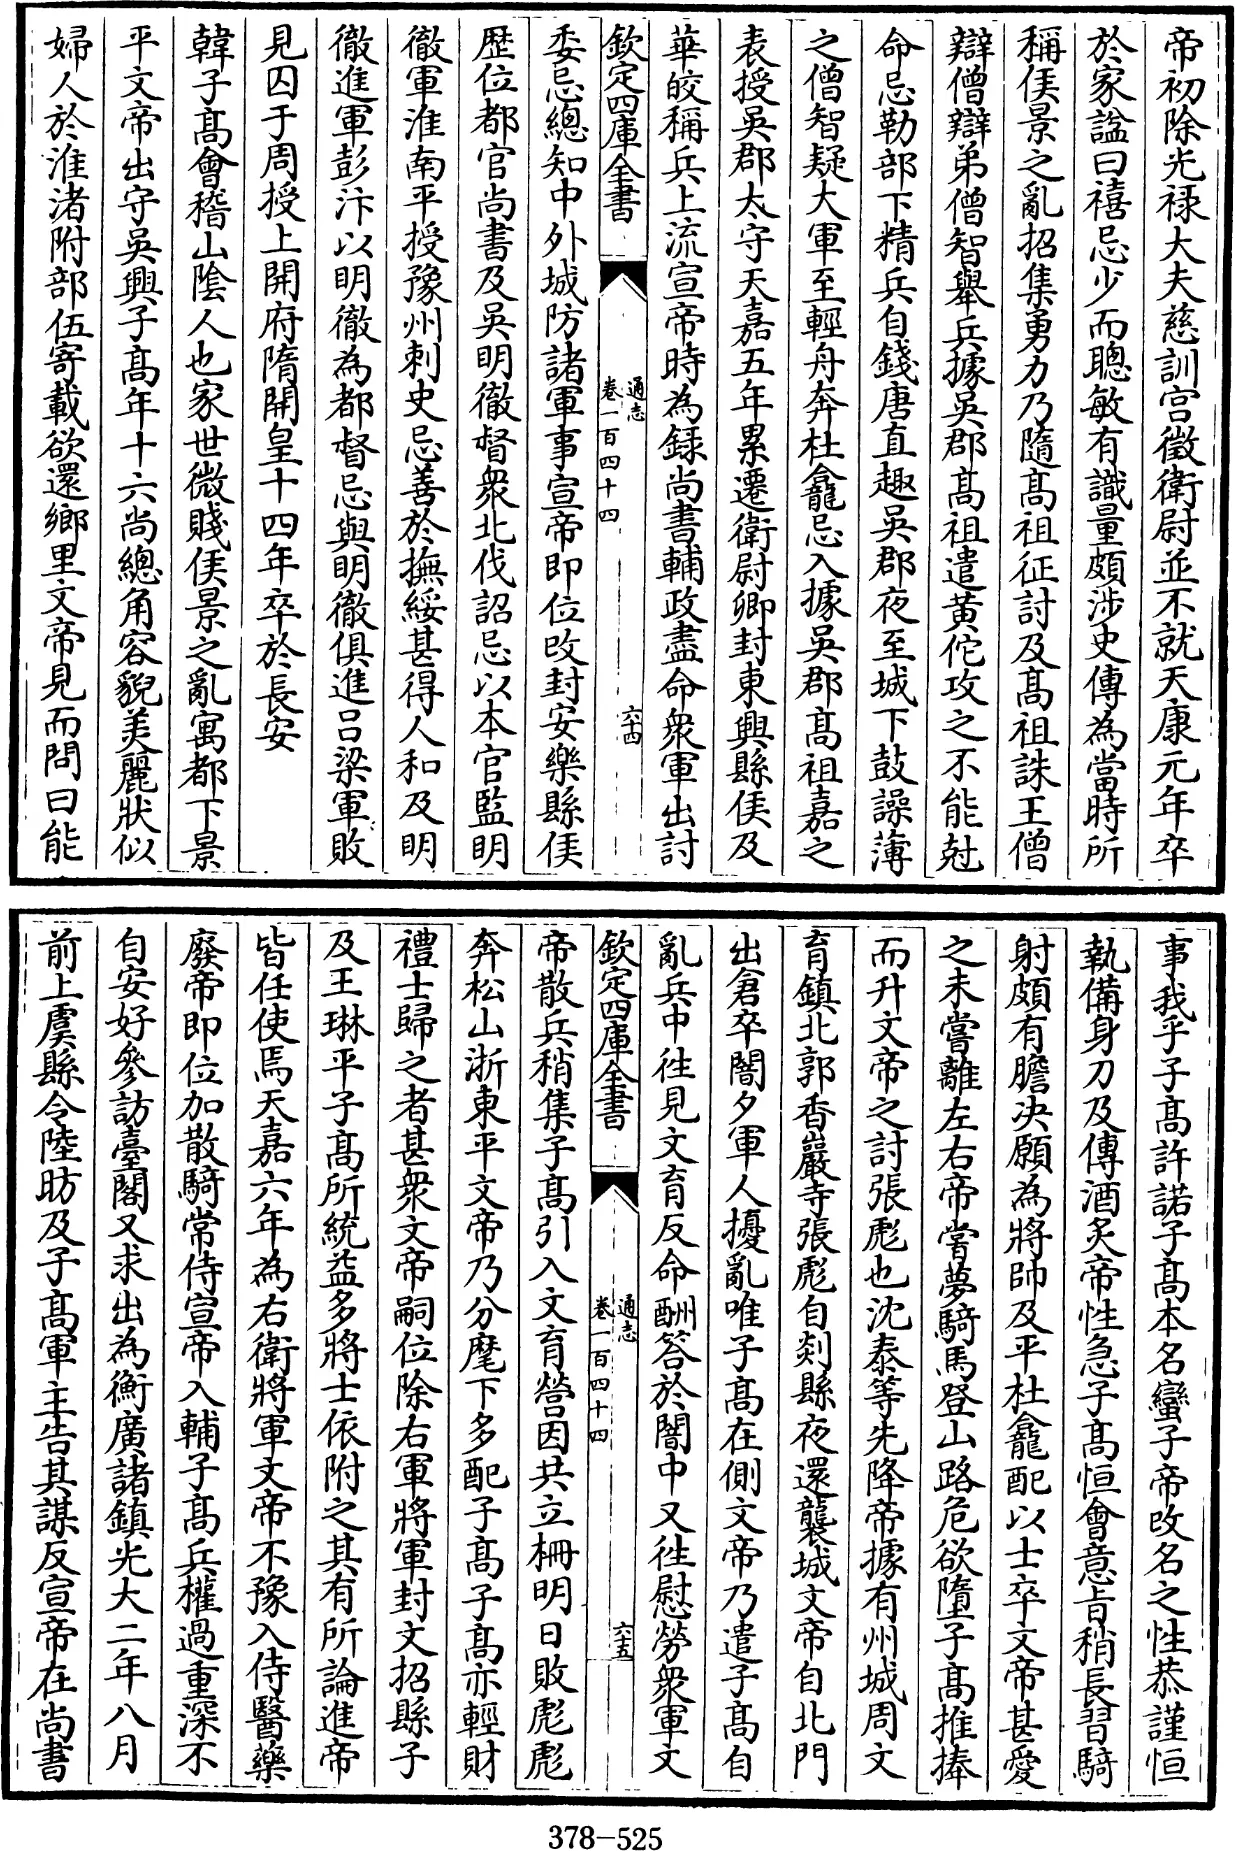 帝初除光祿大夫慈訓宮徵衛尉並不就天康元年卒
於家諡曰禧忌少而聰敏有識量頗涉史傳為當時所
稱侯景之亂招集勇力乃隨髙祖征討及髙祖誅王僧
辯僧辯弟僧智舉兵據吳郡髙祖遣黄佗攻之不能尅
命忌勒部下精兵自錢唐直趣吳郡夜至城下鼓譟薄
之僧智疑大軍至輕舟奔杜龕忌入據吳郡髙祖嘉之
表授吳郡太守天嘉五年累遷衛尉卿封東興縣侯及
華皎稱兵上流宣帝時為錄尚書輔政盡命衆軍出討
欽定四庫全書
通志
卷一百四十四
六十四
委忌總知中外城防諸軍事宣帝即位改封安樂縣侯
歴位都官尚書及吳明徹督衆北伐詔忌以本官監明
徹軍淮南平授豫州刺史忌善於撫綏甚得人和及明
徹進軍彭汴以明徹為都督忌與明徹俱進吕梁軍敗
見囚于周授上開府隋開皇十四年卒於長安
韓子髙會稽山陰人也家世微賤侯景之亂寓都下景
平文帝出守吳興子髙年十六尚總角容貌美麗狀似
婦人於淮渚附部伍寄載欲還鄉里文帝見而問曰能
事我乎子髙許諾子髙本名蠻子帝改名之性恭謹恒
執備身刀及傳酒炙帝性急子髙恒會意旨稍長習騎
射頗有膽決願為將帥及平杜龕配以士卒文帝甚愛
之未嘗離左右帝嘗夢騎馬登山路危欲墮子髙推捧
而升文帝之討張彪也沈泰等先降帝據有州城周文
育鎮北郭香巖寺張彪自剡縣夜還襲城文帝自北門
出倉卒闇夕軍人擾亂唯子髙在側文帝乃遣子髙自
亂兵中徃見文育反命酬答於闇中又徃慰勞衆軍文
欽定四庫全書
通志
卷一百四十四
六十五
帝散兵稍集子髙引入文育營因共立柵明日敗彪彪
奔松山浙東平文帝乃分麾下多配子髙子髙亦輕財
禮士歸之者甚衆文帝嗣位除右軍將軍封文招縣子
及王琳平子髙所統益多將士依附之其有所論進帝
皆任使焉天嘉六年為右衛將軍文帝不豫入侍醫藥
廢帝即位加散騎常侍宣帝入輔子髙兵權過重深不
自安好參訪臺閣又求出為衡廣諸鎮光大二年八月
前上虞縣令陸昉及子髙軍主告其謀反宣帝在尚書
378-525